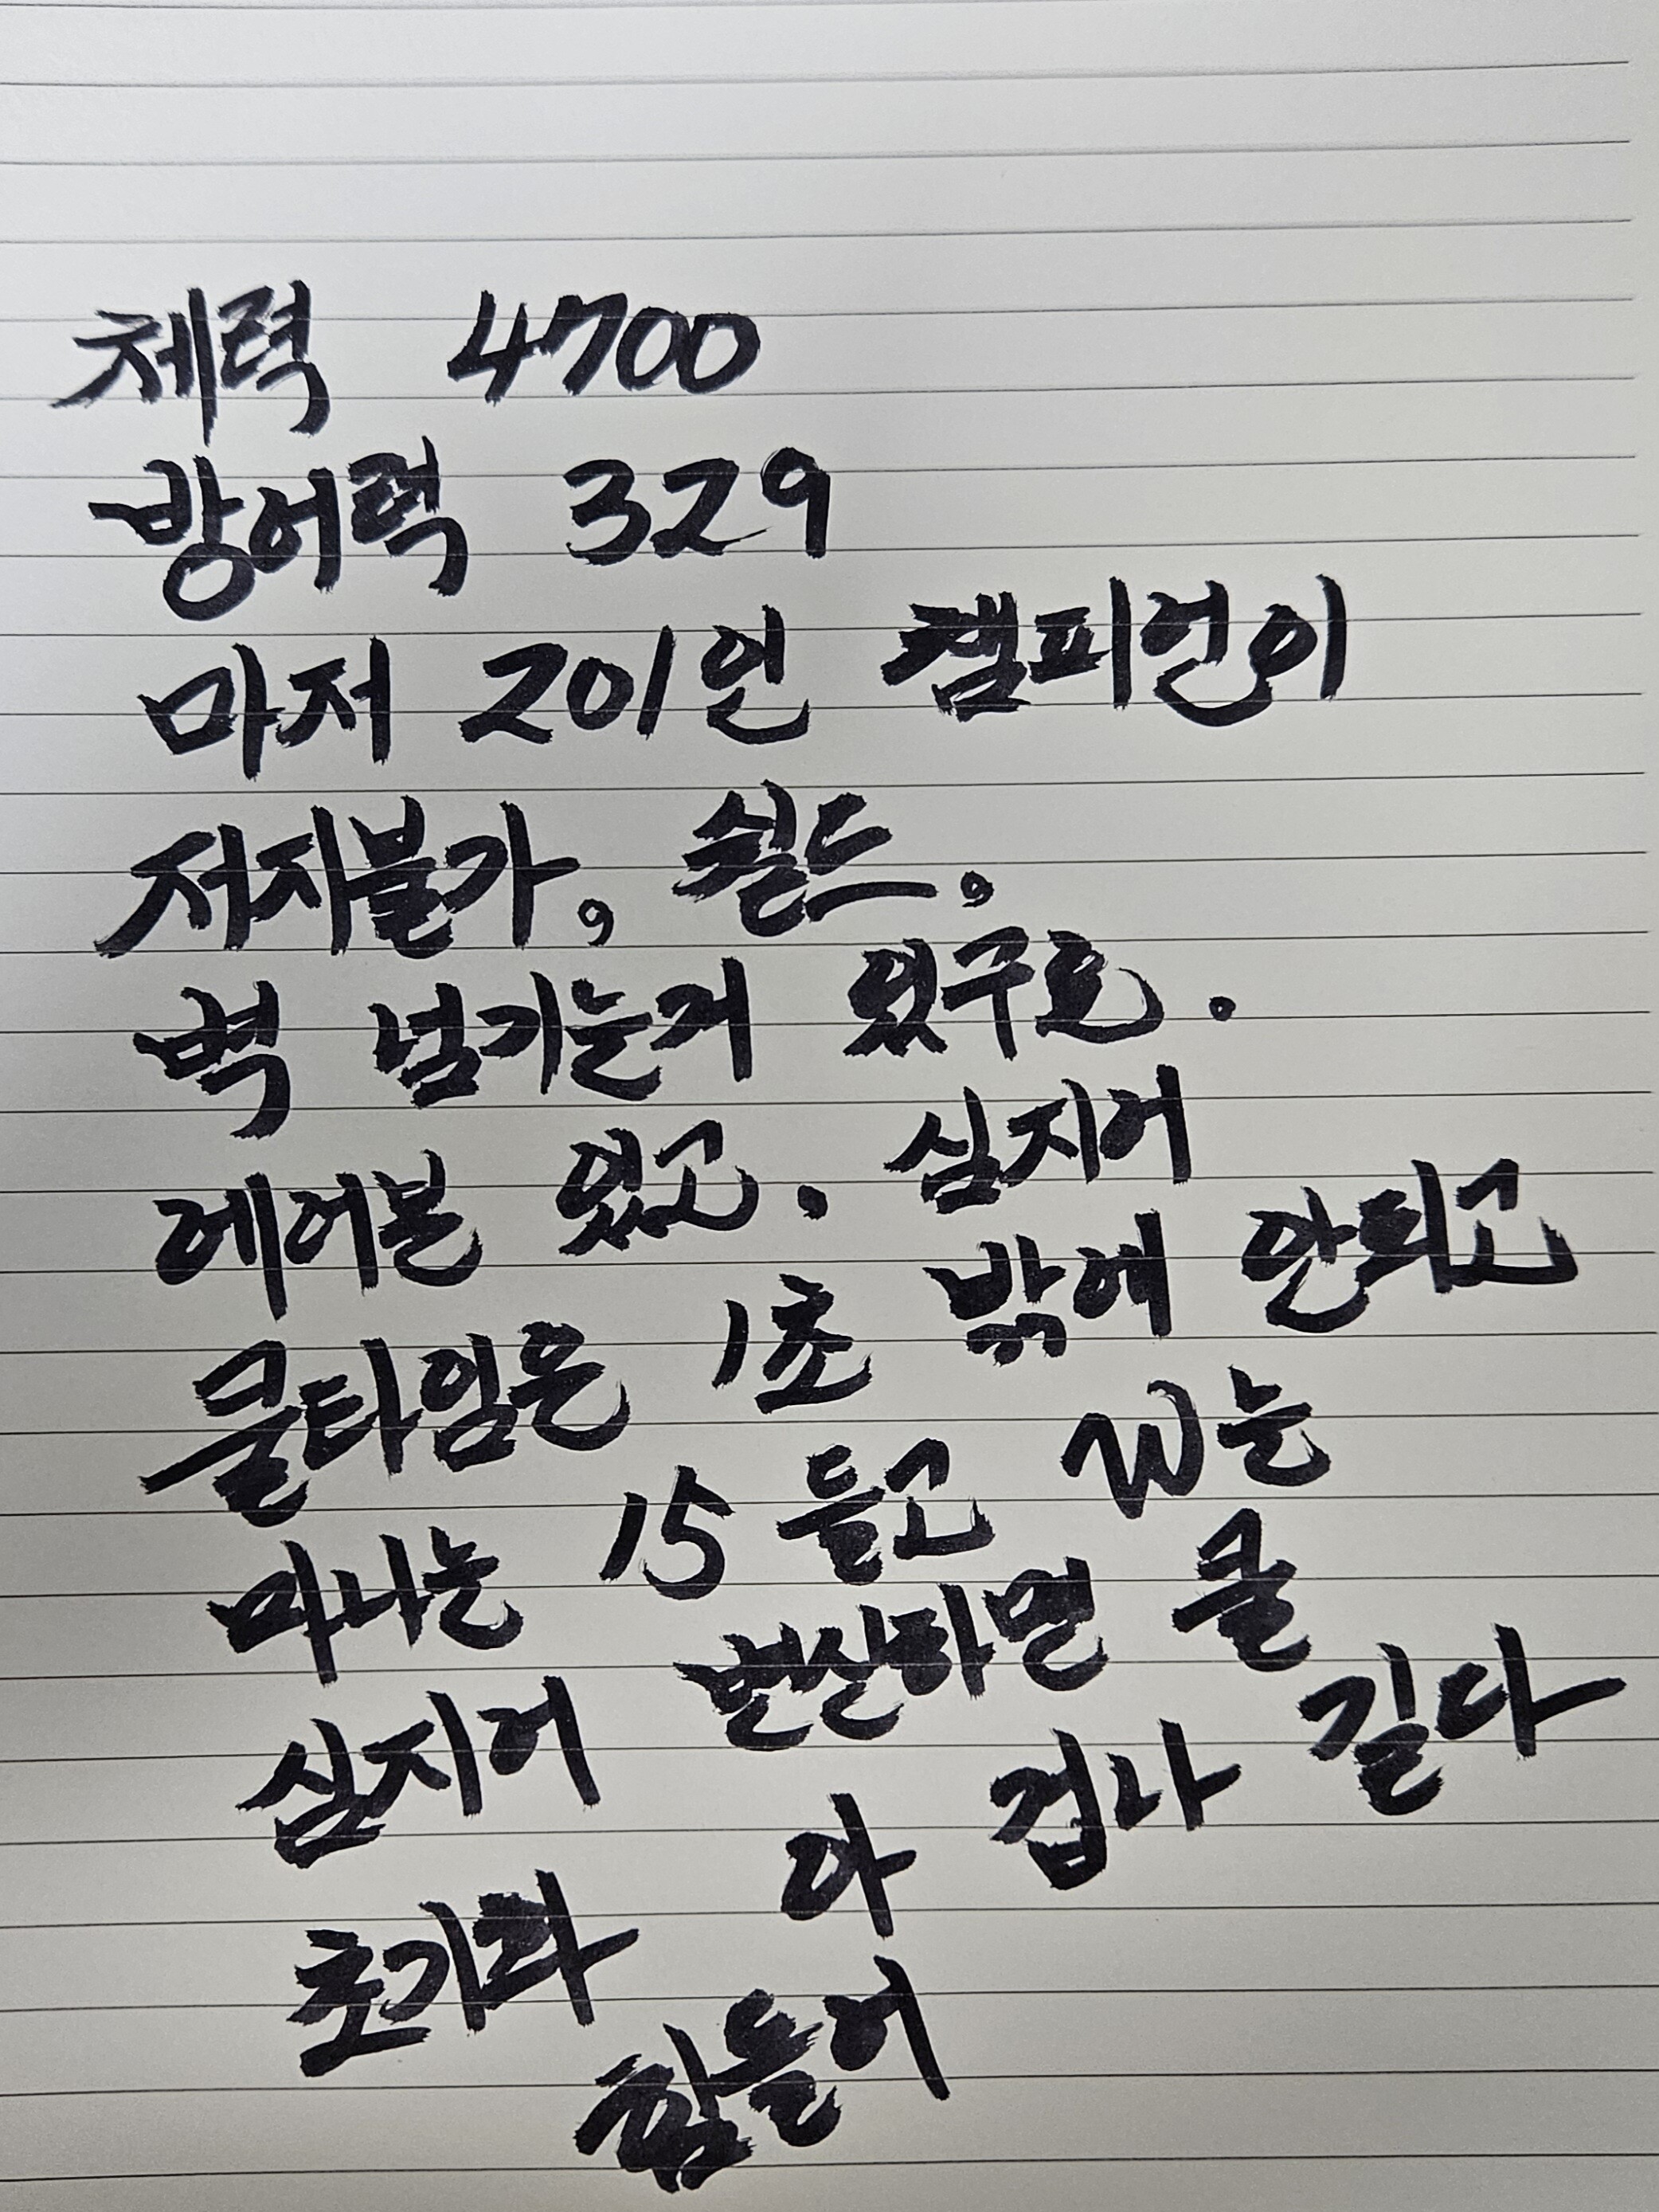 체력 4700
방어력 329
마저 201인 챔피언이
저지불가, 쉴드,
벽 넘기는거 있구요.
에어본 있고. 심지어
쿨타임은 1초 밖에 안되고
마나는 15 들고 W는
심지어 변신하면 쿨
초기화 아 겁나 길다
힘들어